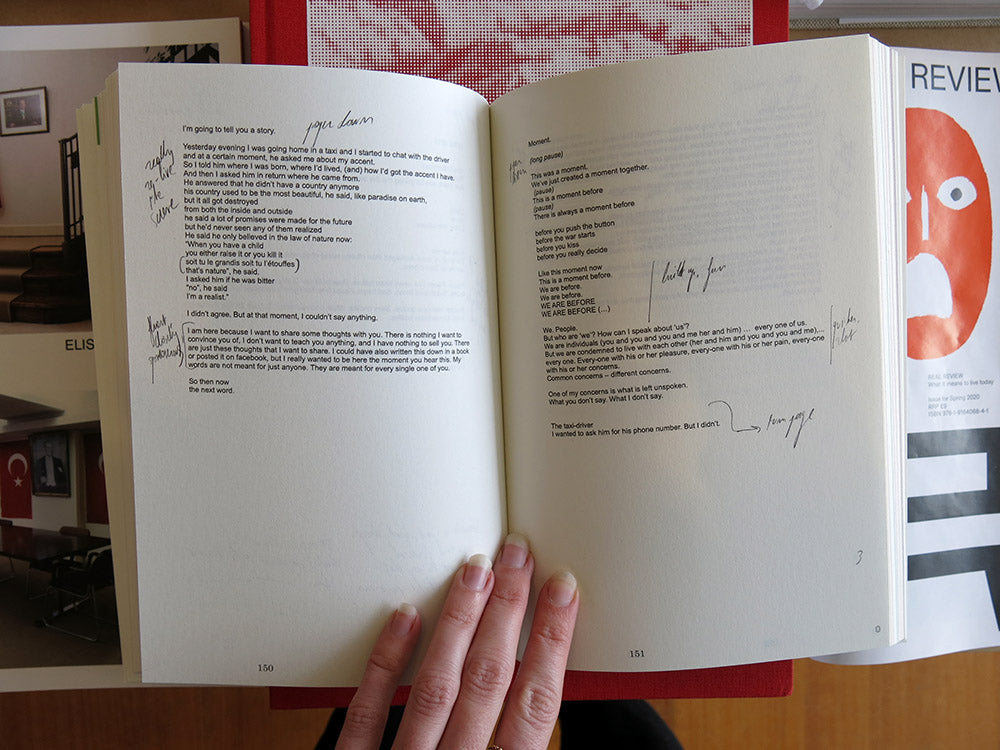 I'm going to tell you a story.
paper down
Yesterday evening I was going home in a taxi and I started to chat with the driver
and at a certain moment, he asked me about my accent.
So I told him where I was born, where I'd lived, (and) how I'd got the accent I have.
And then I asked him in return where he came from.
He answered that he didn't have a country anymore
his country used to be the most beautiful, he said, like paradise on earth,
but it all got destroyed
from both the inside and outside
he said a lot of promises were made for the future
but he'd never seen any of them realized
He said he only believed in the law of nature now:
"When you have a child
you either raise it or you kill it
soit tu le grandis soit tu l'étouffes
that's nature", he said.
I asked him if he was bitter
"no", he said
I'm a realist."
really
live
the
scene
I didn't agree. But at that moment, I couldn't say anything.
I am here because I want to share some thoughts with you. There is nothing I want to
convince you of, I don't want to teach you anything, and I have nothing to sell you. There
are just these thoughts that I want to share. I could have also written this down in a book
or posted it on facebook, but I really wanted to be here the moment you hear this. My
words are not meant for just anyone. They are meant for every single one of you.
So then now
the next word.
150
Moment.
(long pause)
This was a moment.
We've just created a moment together.
(pause)
This is a moment before
(pause)
There is always a moment before
before you push the button
before the war starts
before you kiss
before you really decide
Like this moment now
This is a moment before.
We are before.
We are before.
WE ARE BEFORE
WE ARE BEFORE (…)
build up, fun
We. People.
But who are 'we'? How can I speak about 'us'?
We are individuals (you and you and you and me her and him) … every one of us.
But we are condemned to live with each other (her and him and you and you and me)…
every one. Every-one with his or her pleasure, every-one with his or her pain, every-one
with his or her concerns.
Common concerns – different concerns.
One of my concerns is what is left unspoken.
What you don't say. What I don't say.
The taxi-driver
I wanted to ask him for his phone number. But I didn't.
turn page
3
151
ELIS
REVIEW
REAL REVIEW
What it means to live today
Issue for Spring 2020
RRP £9